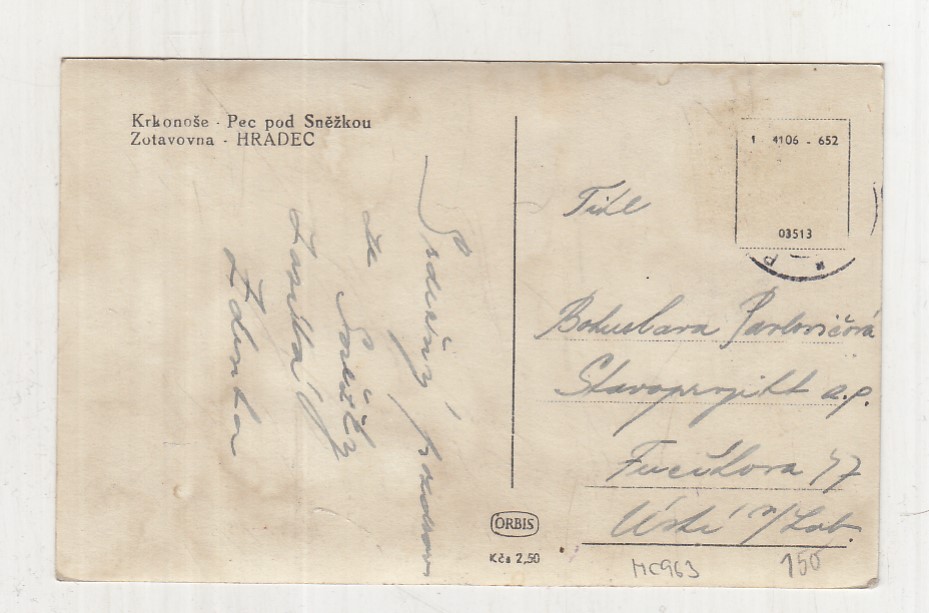 Krkonoše - Pec pod Sněžkou
Zotavovna - HRADEC
Srdečný pozdrav
ze Sněžky
zasílá
Zdenka
1 4106 - 652
03513
Bohuslava Pavlovičová
Stavoprojekt n.p.
Fučíkova 47
Ústí n/Lab.
ORBIS
Kčs 2,50
MC963
150